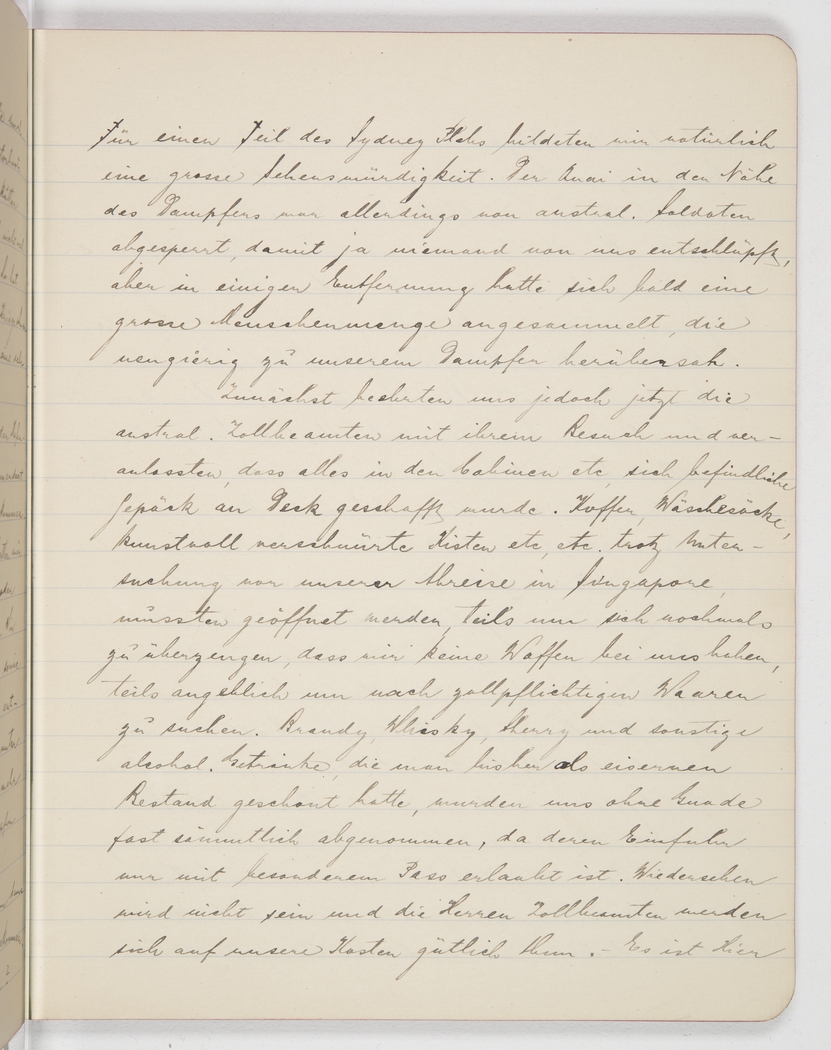 Für einen Teil des Sydney Plebs bildeten wir natürlich
eine grosse Sehenswürdigkeit. Der Quai in der Nähe
des Dampfers war allerdings von austral. Soldaten
abgesperrt, damit ja niemand von uns entschlüpft,
aber in einiger Entfernung hatte sich bald eine
grosse Menschenmenge angesammelt, die
neugierig zu unserem Dampfer herübersah.
Zunächst beehrten uns jedoch jetzt die
austral. Zollbeamten mit ihrem Besuch und ver-
anlassten, dass alles in den Cabinen etc. sich befindliche
Gepäck an Deck geschafft wurde. Koffer, Wäschesäcke,
kunstvoll verschnürte Kisten etc, etc. trotz Unter-
suchung vor unserer Abreise in Singapore,
mussten geöffnet werden, teils um sich nochmals
zu überzeugen, dass wir keine Waffen bei uns haben,
teils angeblich um nach zollpflichtigen Waaren
zu suchen. Brandy, Whisky, Sherry und sonstige
alcohol. Getränke, die man bisher als eisernen
Bestand geschont hatte, wurden uns ohne Gnade
fast sämmtlich abgenommen, da deren Einfuhr
nur mit besonderem Pass erlaubt ist. Wiedersehen
wird nicht sein und die Herren Zollbeamten werden
sich auf unsere Kosten gütlich thun. - Es ist hier